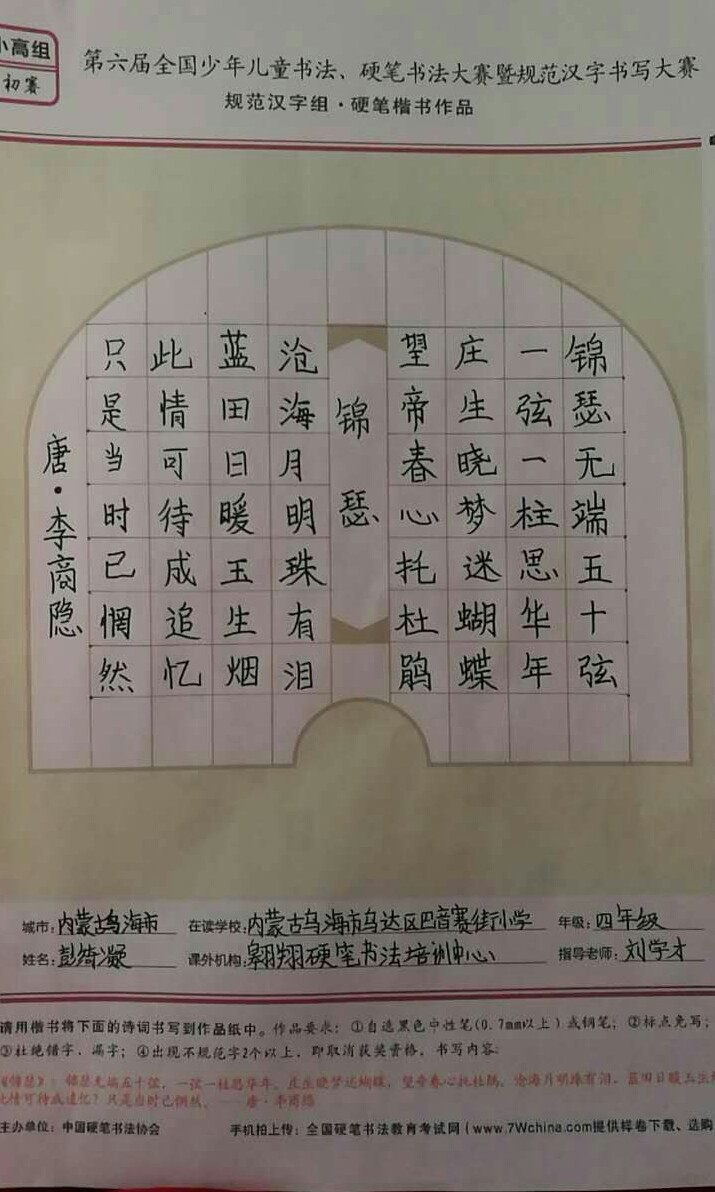 小高组
初赛
第六届全国少年儿童书法、硬笔书法大赛暨规范汉字书写大赛
规范汉字组·硬笔楷书作品
锦瑟无端五十弦
一弦一柱思华年
庄生晓梦迷蝴蝶
望帝春心托杜鹃
锦瑟
沧海月明珠有泪
蓝田日暖玉生烟
此情可待成追忆
只是当时已惘然
唐·李商隐
城市：内蒙古乌海市 在读学校：内蒙古乌海市乌达区巴音赛街小学 年级：四年级
姓名：彭绮凝 课外机构：翱翔硬笔书法培训中心 指导老师：刘学才
请用楷书将下面的诗词书写到作品纸中。作品要求：①自选黑色中性笔(0.7mm以上)或钢笔；②标点免写；
③杜绝错字、漏字；④出现不规范字2个以上，即取消获奖资格，书写内容：
《锦瑟》：锦瑟无端五十弦，一弦一柱思华年。庄生晓梦迷蝴蝶，望帝春心托杜鹃。沧海月明珠有泪，蓝田日暖玉生烟
此情可待成追忆？只是当时已惘然。——唐·李商隐
主办单位：中国硬笔书法协会 手机拍上传：全国硬笔书法教育考试网(www.7Wchina.com提供样卷下载、选购